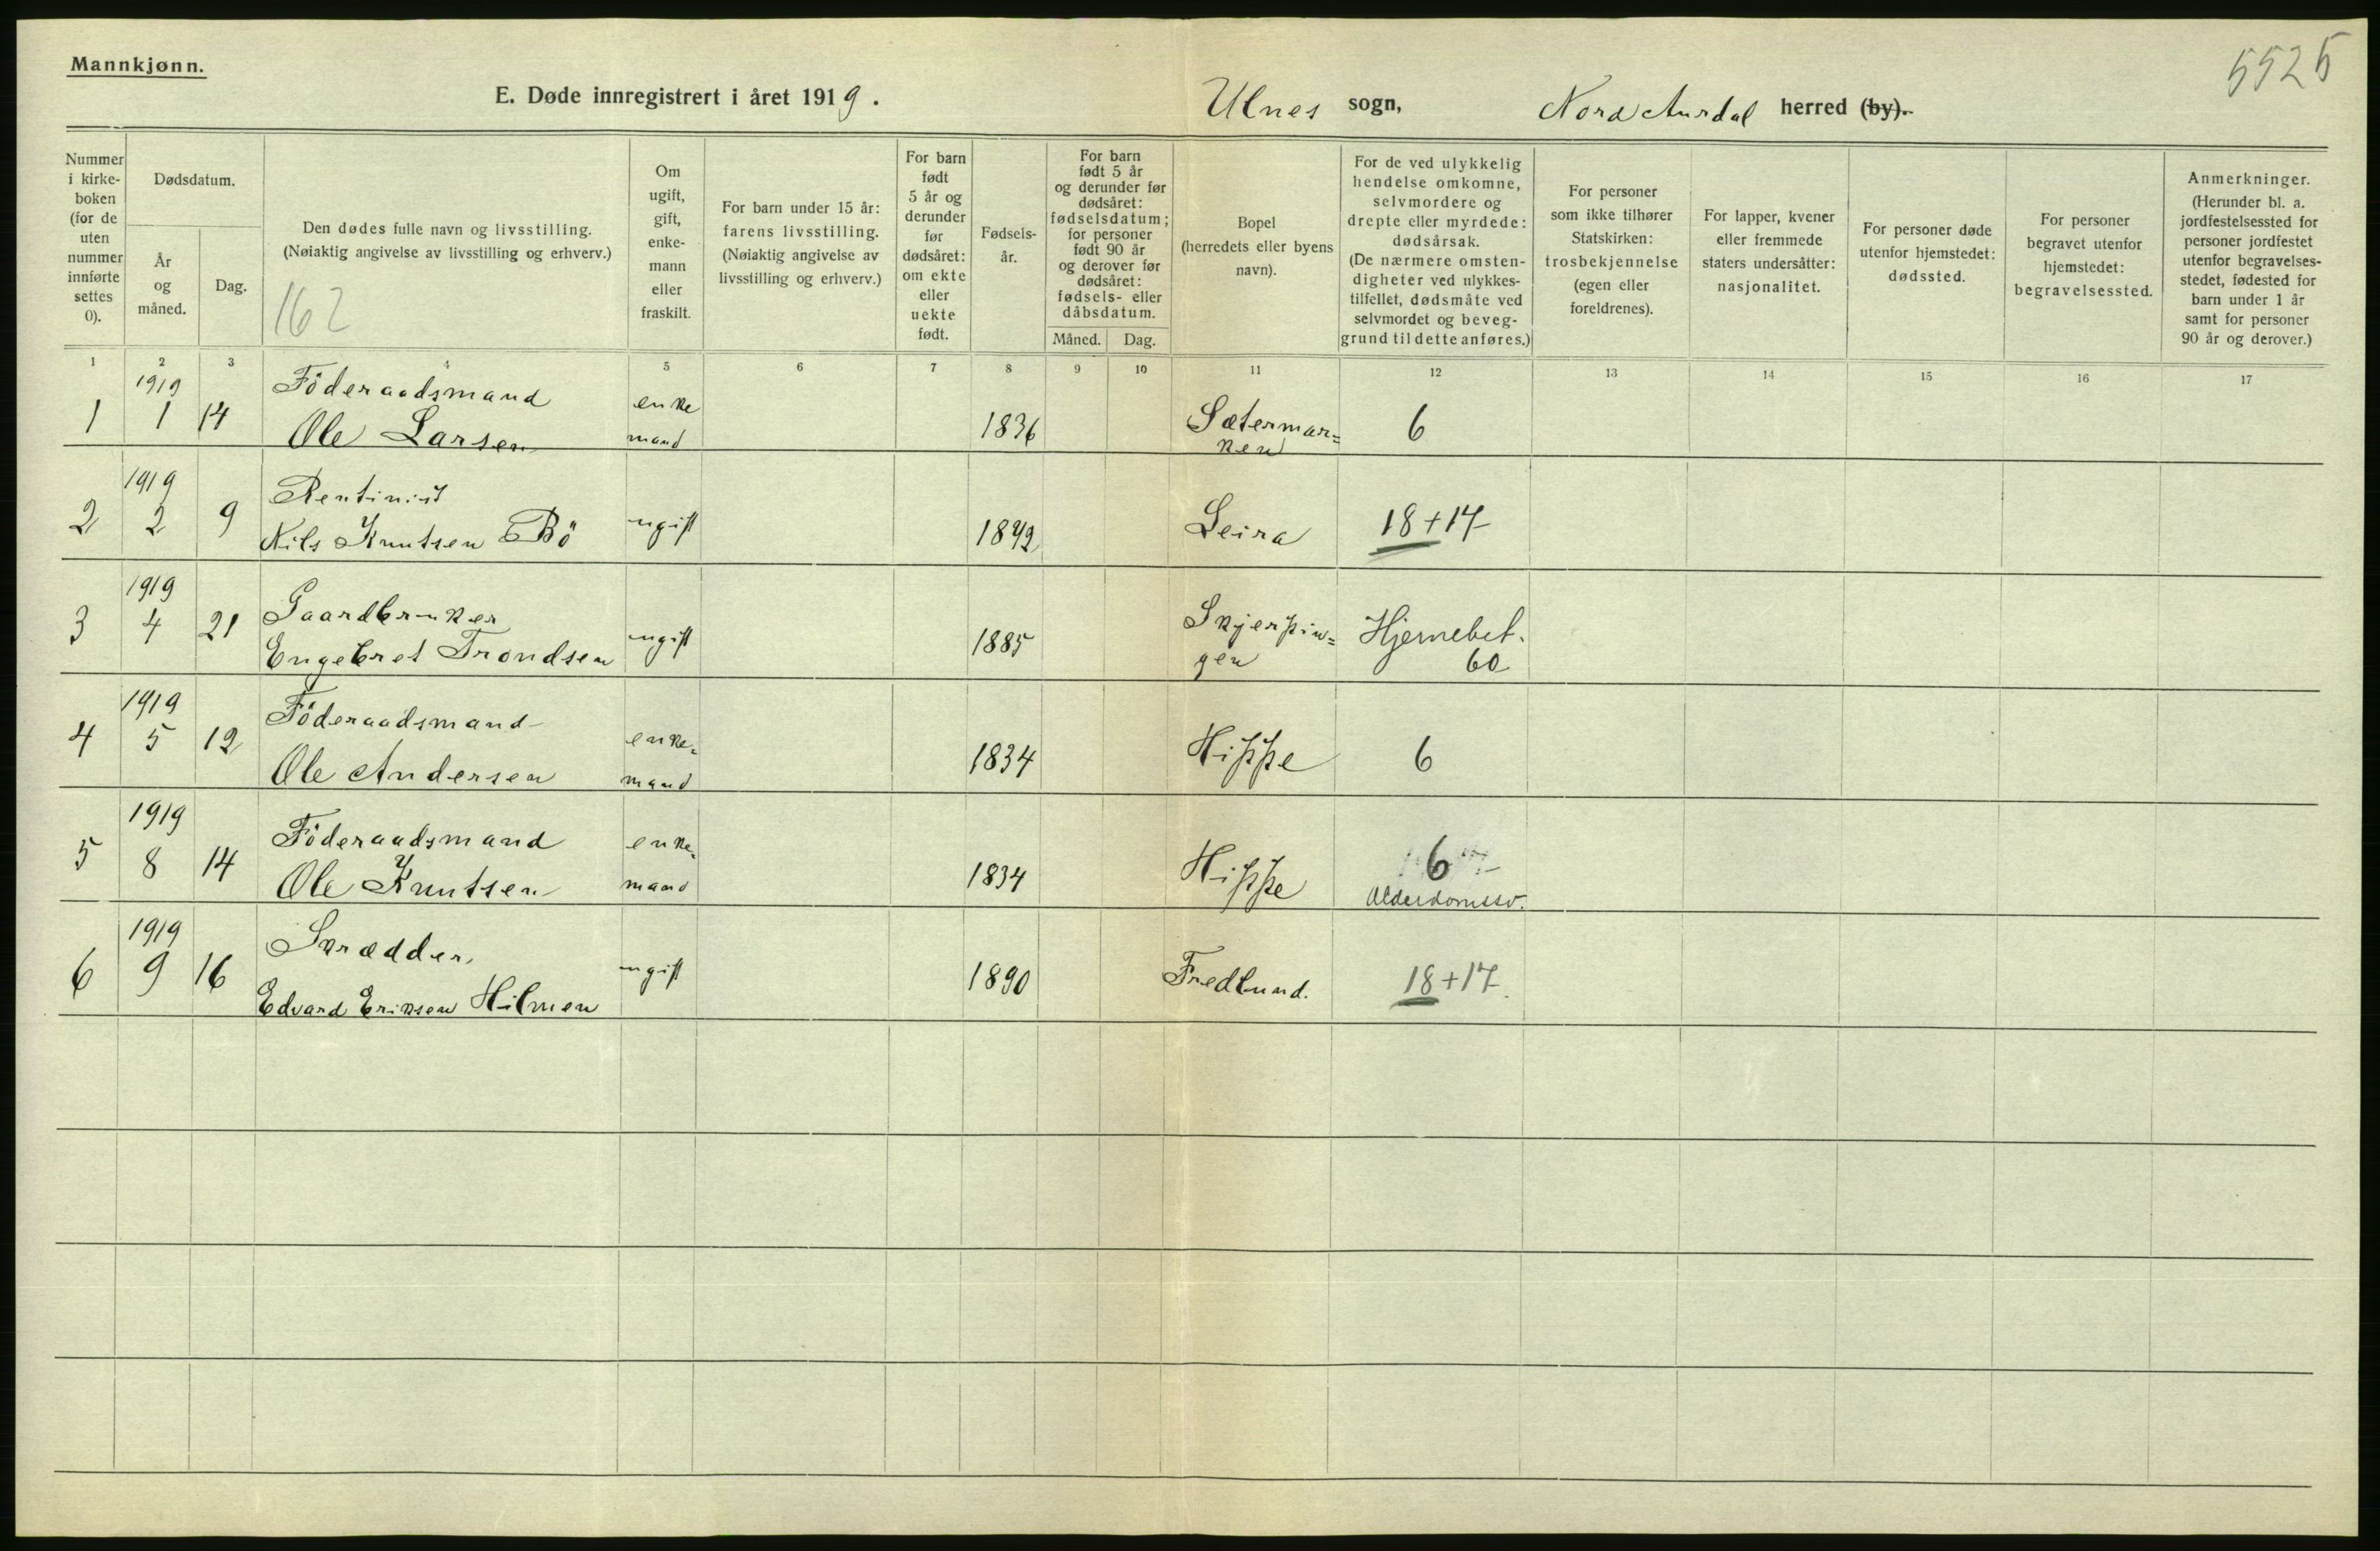 Mannkjønn.
5525
E. Døde innregistrert i året 1919.
Ulnes sogn,
Nord Aurdal herred (by).
Nummer
i kirke-
boken
(for de
uten
nummer
innførte
settes
0).
Dødsdatum.
År
og
måned.
Dag.
Den dødes fulle navn og livsstilling.
(Nøiaktig angivelse av livsstilling og erhverv.)
162
Om
ugift,
gift,
enke-
mann
eller
fraskilt.
For barn under 15 år:
farens livsstilling.
(Nøiaktig angivelse av
livsstilling og erhverv.)
For barn
født
5 år og
derunder
før
dødsåret:
om ekte
eller
uekte
født.
Fødsels-
år.
For barn
født 5 år
og derunder før
dødsåret:
fødselsdatum;
for personer
født 90 år
og derover før
dødsåret:
fødsels- eller
dåbsdatum.
Måned.
Dag.
Bopel
(herredets eller byens
navn).
For de ved ulykkelig
hendelse omkomne,
selvmordere og
drepte eller myrdede:
dødsårsak.
(De nærmere omsten-
digheter ved ulykkes-
tilfellet, dødsmåte ved
selvmordet og beveg-
grund til dette anføres.)
For personer
som ikke tilhører
Statskirken:
trosbekjennelse
(egen eller
foreldrenes).
For lapper, kvener
eller fremmede
staters undersåtter:
nasjonalitet.
For personer døde
utenfor hjemstedet:
dødssted.
For personer
begravet utenfor
hjemstedet:
begravelsessted.
Anmerkninger.
(Herunder bl. a.
jordfestelsessted for
personer jordfestet
utenfor begravelses-
stedet, fødested for
barn under 1 år
samt for personer
90 år og derover.)
1 2 3 4 5 6 7 8 9 10 11 12 13 14 15 16 17
1919 Föderaadsmand enke Sætermar=
1 1 14 Ole Larsen mand 1836 ken 6
1919 Rentinist
2 2 9 Nils Knutsen Bö ugift 1842 Leira 18+17
1919 Gaardbruker Skjerpin= Hjernebet.
3 4 21 Engebret Trondsen ugift 1885 gen 60
1919 Föderaadsmand enke=
4 5 12 Ole Andersen mand 1834 Hippe 6
1919 Föderaadsmand enke= 6
5 8 14 Ole Knutsen mand 1834 Hippe Alderdomssv.
1919 Skrædder
6 9 16 Edvard Eriksen Hilmen ugift 1890 Fredlund. 18+17